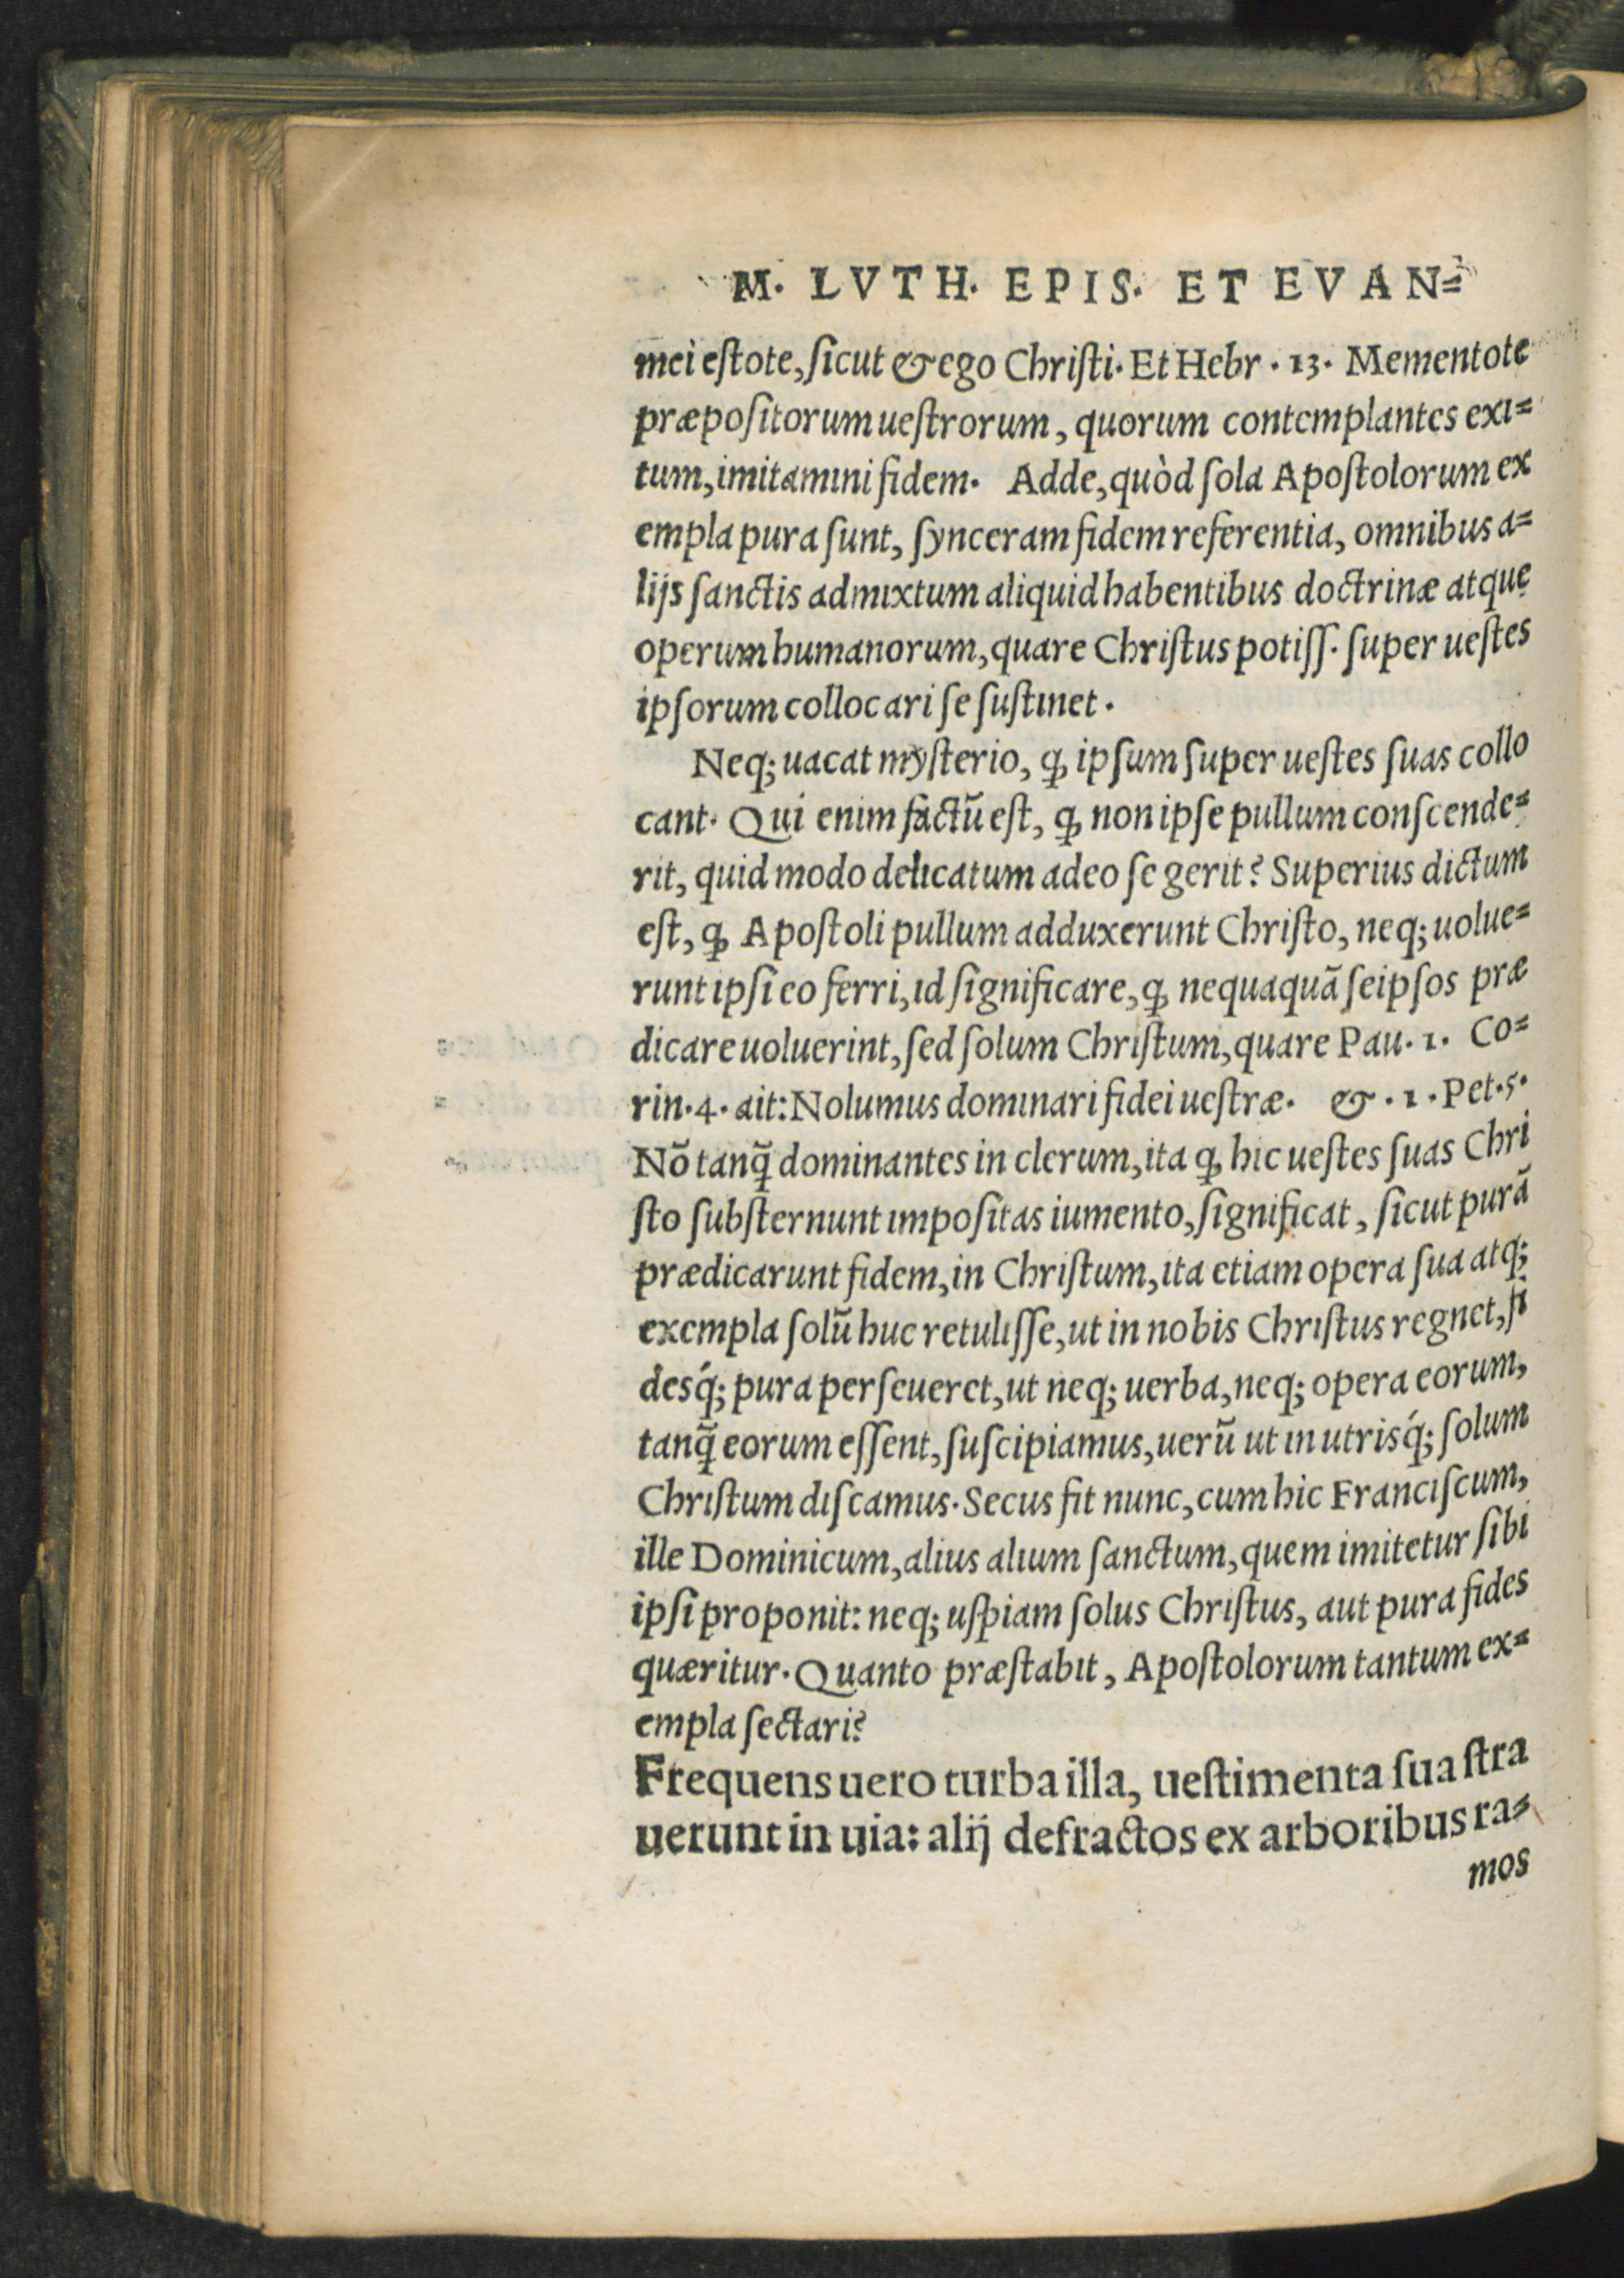 M. LVTH. EPIS. ET EVAN=
mei estote, sicut & ego Christi. Et Hebr. 13. Mementote
præpositorum uestrorum, quorum contemplantes exi=
tum, imitamini fidem. Adde, quòd sola Apostolorum ex
empla pura sunt, synceram fidem referentia, omnibus a=
lijs sanctis admixtum aliquid habentibus doctrinæ atque
operum humanorum, quare Christus potiss. super uestes
ipsorum collocari se sustinet.
Neq; uacat mysterio, ꝙ ipsum super uestes suas collo
cant. Qui enim factũ est, ꝙ non ipse pullum conscende=
rit, quid modo delicatum adeo se gerit? Superius dictum
est, ꝙ Apostoli pullum adduxerunt Christo, neq; uolue=
runt ipsi eo ferri, id significare, ꝙ nequaquã seipsos præ
dicare uoluerint, sed solum Christum, quare Pau. 1. Co=
rin. 4. ait: Nolumus dominari fidei uestræ. & . 1. Pet. 5.
Nõ tanq̃ dominantes in clerum, ita ꝙ hic uestes suas Chri
sto substernunt impositas iumento, significat, sicut purã
prædicarunt fidem, in Christum, ita etiam opera sua atq;
exempla solũ huc retulisse, ut in nobis Christus regnet, fi
desq́; pura perseueret, ut neq; uerba, neq; opera eorum,
tanq̃ eorum essent, suscipiamus, uerũ ut in utrisq́; solum
Christum discamus. Secus fit nunc, cum hic Franciscum,
ille Dominicum, alius alium sanctum, quem imitetur sibi
ipsi proponit: neq; uspiam solus Christus, aut pura fides
quæritur. Quanto præstabit, Apostolorum tantum ex=
empla sectari?
Frequens uero turba illa, uestimenta sua stra
uerunt in uia: alij defractos ex arboribus ra=
mos